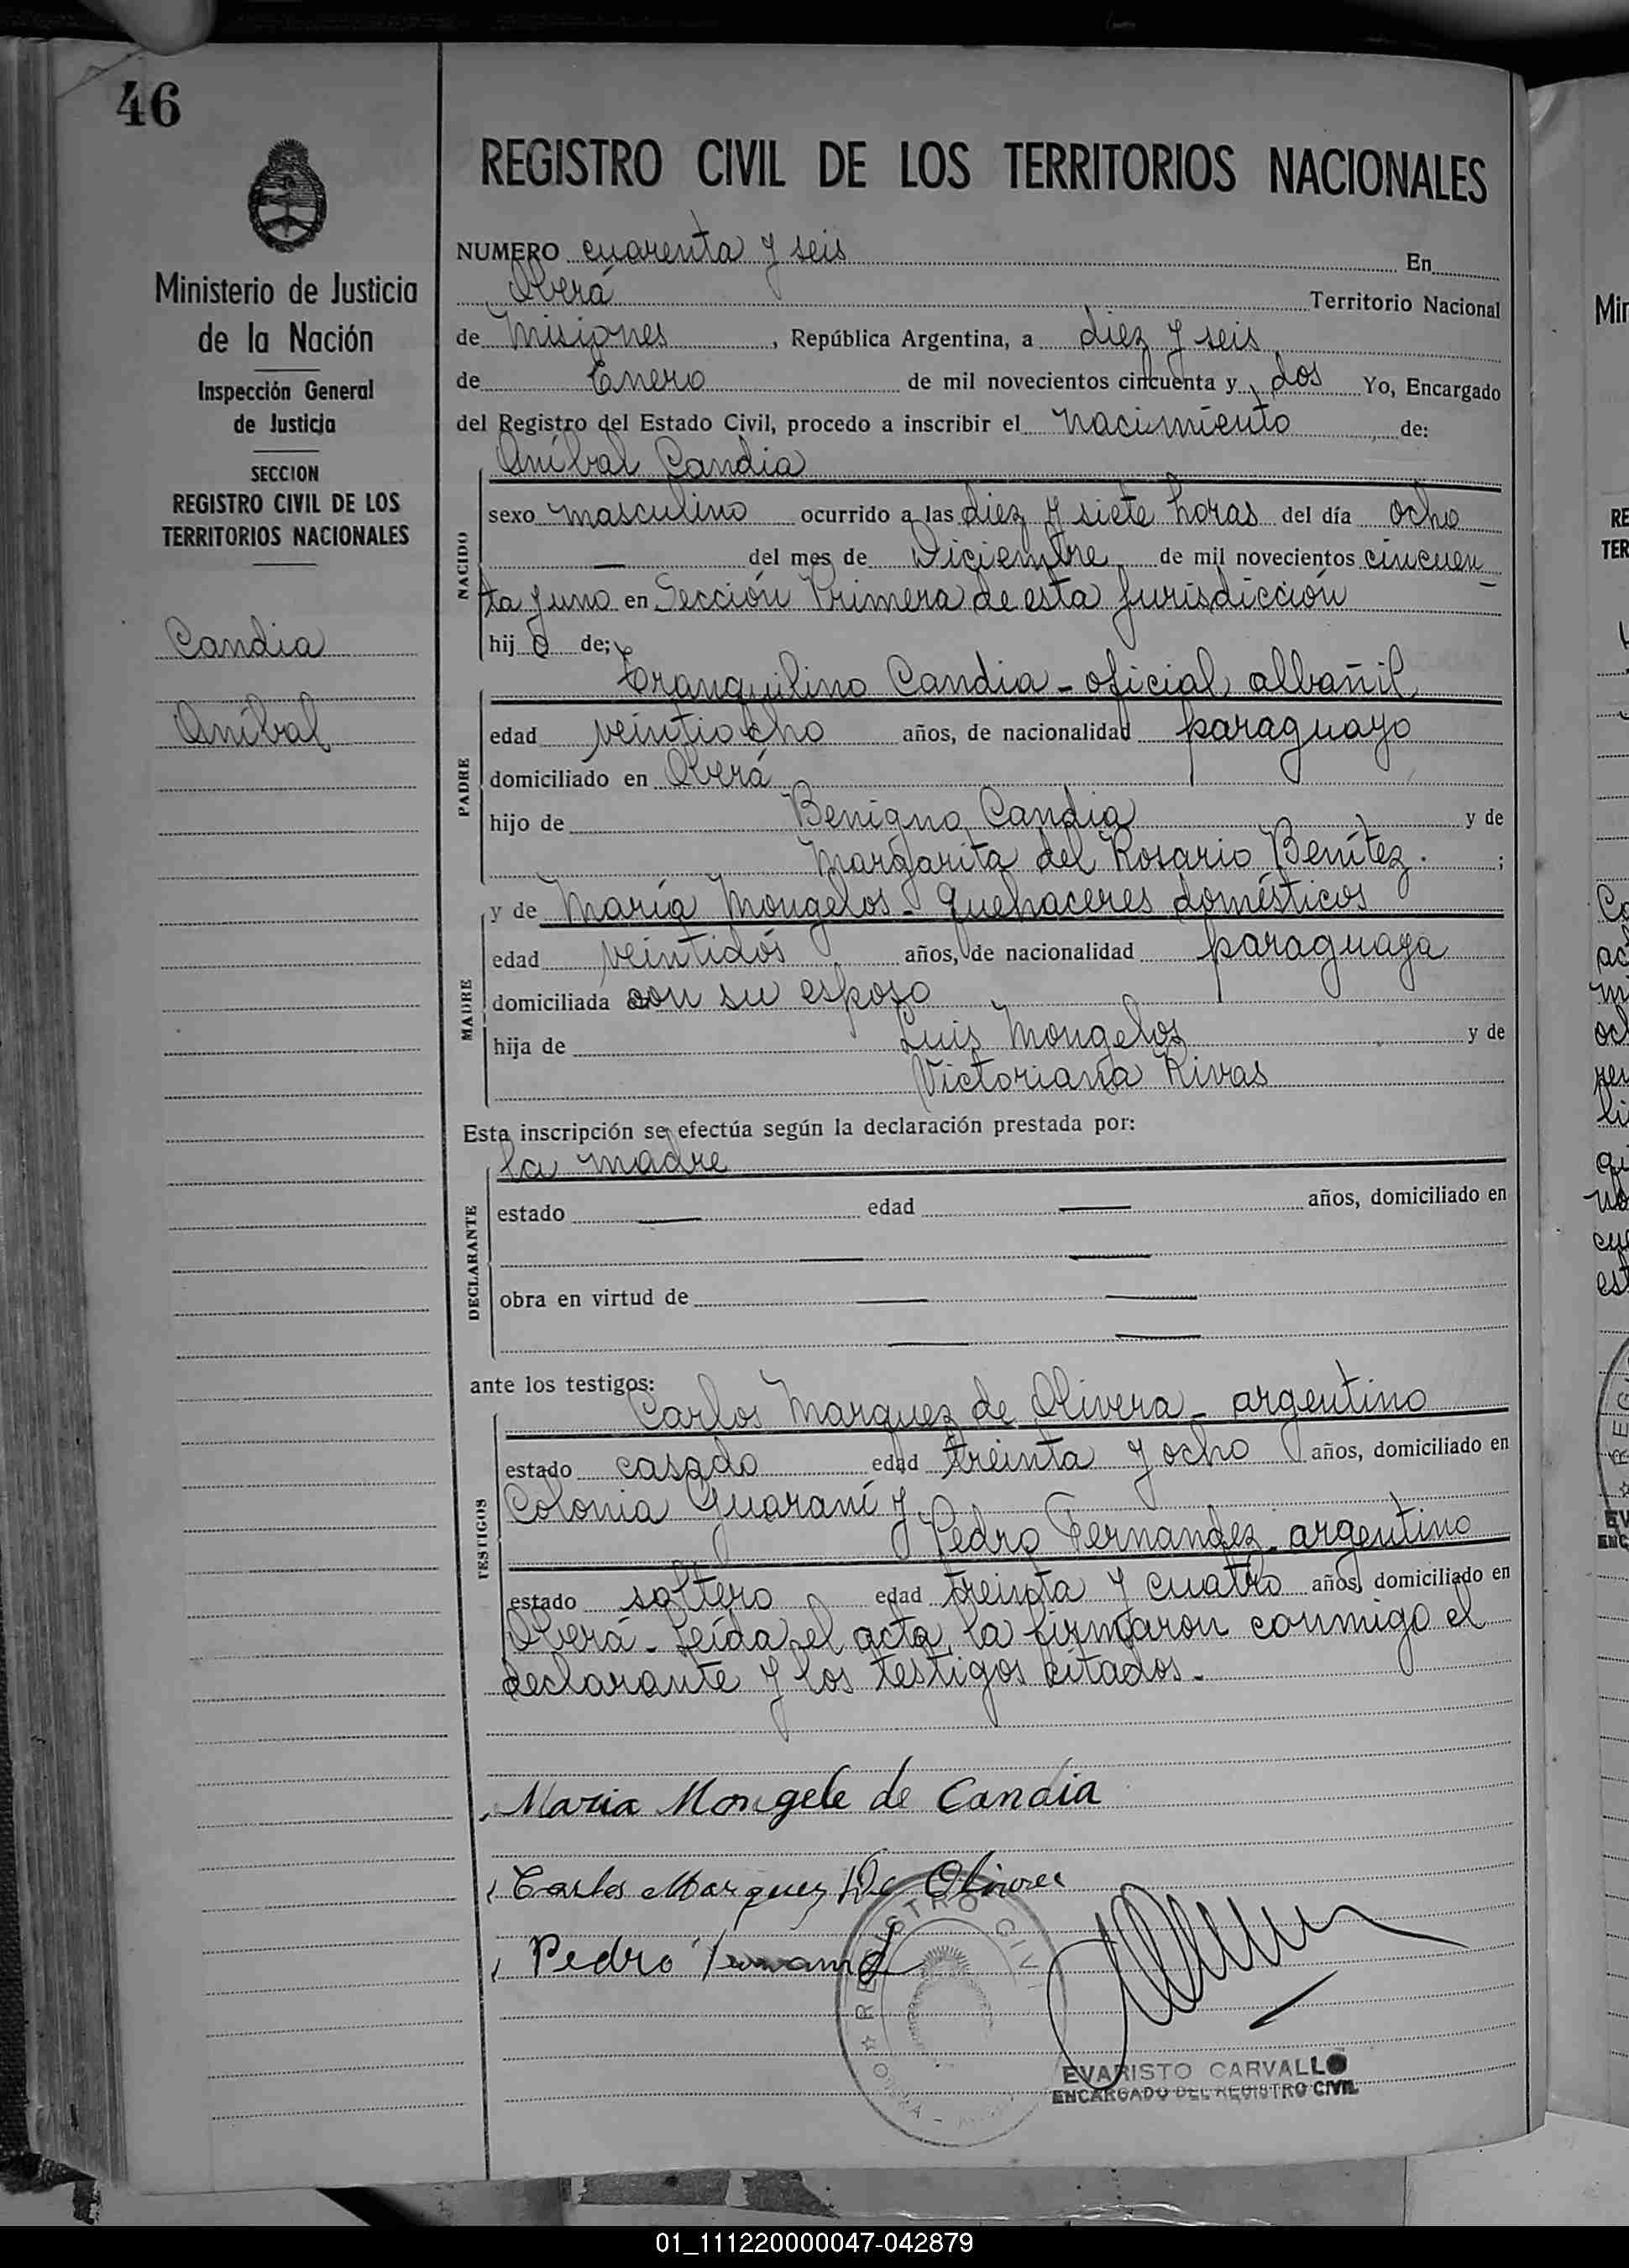 46
Ministerio de Justicia
de la Nación
Inspección General
de Justicia
SECCION
REGISTRO CIVIL DE LOS
TERRITORIOS NACIONALES
Candia
Aníbal
REGISTRO CIVIL DE LOS TERRITORIOS NACIONALES
NUMERO cuarenta y seis En
Oberá Territorio Nacional
de Misiones, República Argentina, a diez y seis
de Enero de mil novecientos cincuenta y dos Yo, Encargado
del Registro del Estado Civil, procedo a inscribir el nacimiento de:
Aníbal Candia
NACIDO
sexo masculino ocurrido a las diez y siete horas del día ocho
— del mes de Diciembre de mil novecientos cincuen-
ta y uno en Sección Primera de esta jurisdicción
hijo de;
Tranquilino Candia - oficial albañil
PADRE
edad veintiocho años, de nacionalidad paraguayo
domiciliado en Oberá
hijo de Benigno Candia y de
Margarita del Rosario Benítez. ;
y de María Mongelos - quehaceres domésticos
MADRE
edad veintidós años, de nacionalidad paraguaya
domiciliada con su esposo
hija de Luis Mongelos y de
Victoriana Rivas
Esta inscripción se efectúa según la declaración prestada por:
la madre
DECLARANTE
estado — edad — años, domiciliado en
— —
obra en virtud de — —
— —
ante los testigos:
Carlos Marquez de Olivera - argentino
TESTIGOS
estado casado edad treinta y ocho años, domiciliado en
Colonia Guaraní y
Pedro Fernandez - argentino
estado soltero edad treinta y cuatro años, domiciliado en
Oberá - Leída el acta, la firmaron conmigo el
declarante y los testigos citados.-
Maria Mongele de Candia
Carlos Marquez De Olivera
Pedro
REGISTRO CIVIL
EVARISTO CARVALLO
ENCARGADO DEL REGISTRO CIVIL
01_111220000047-042879